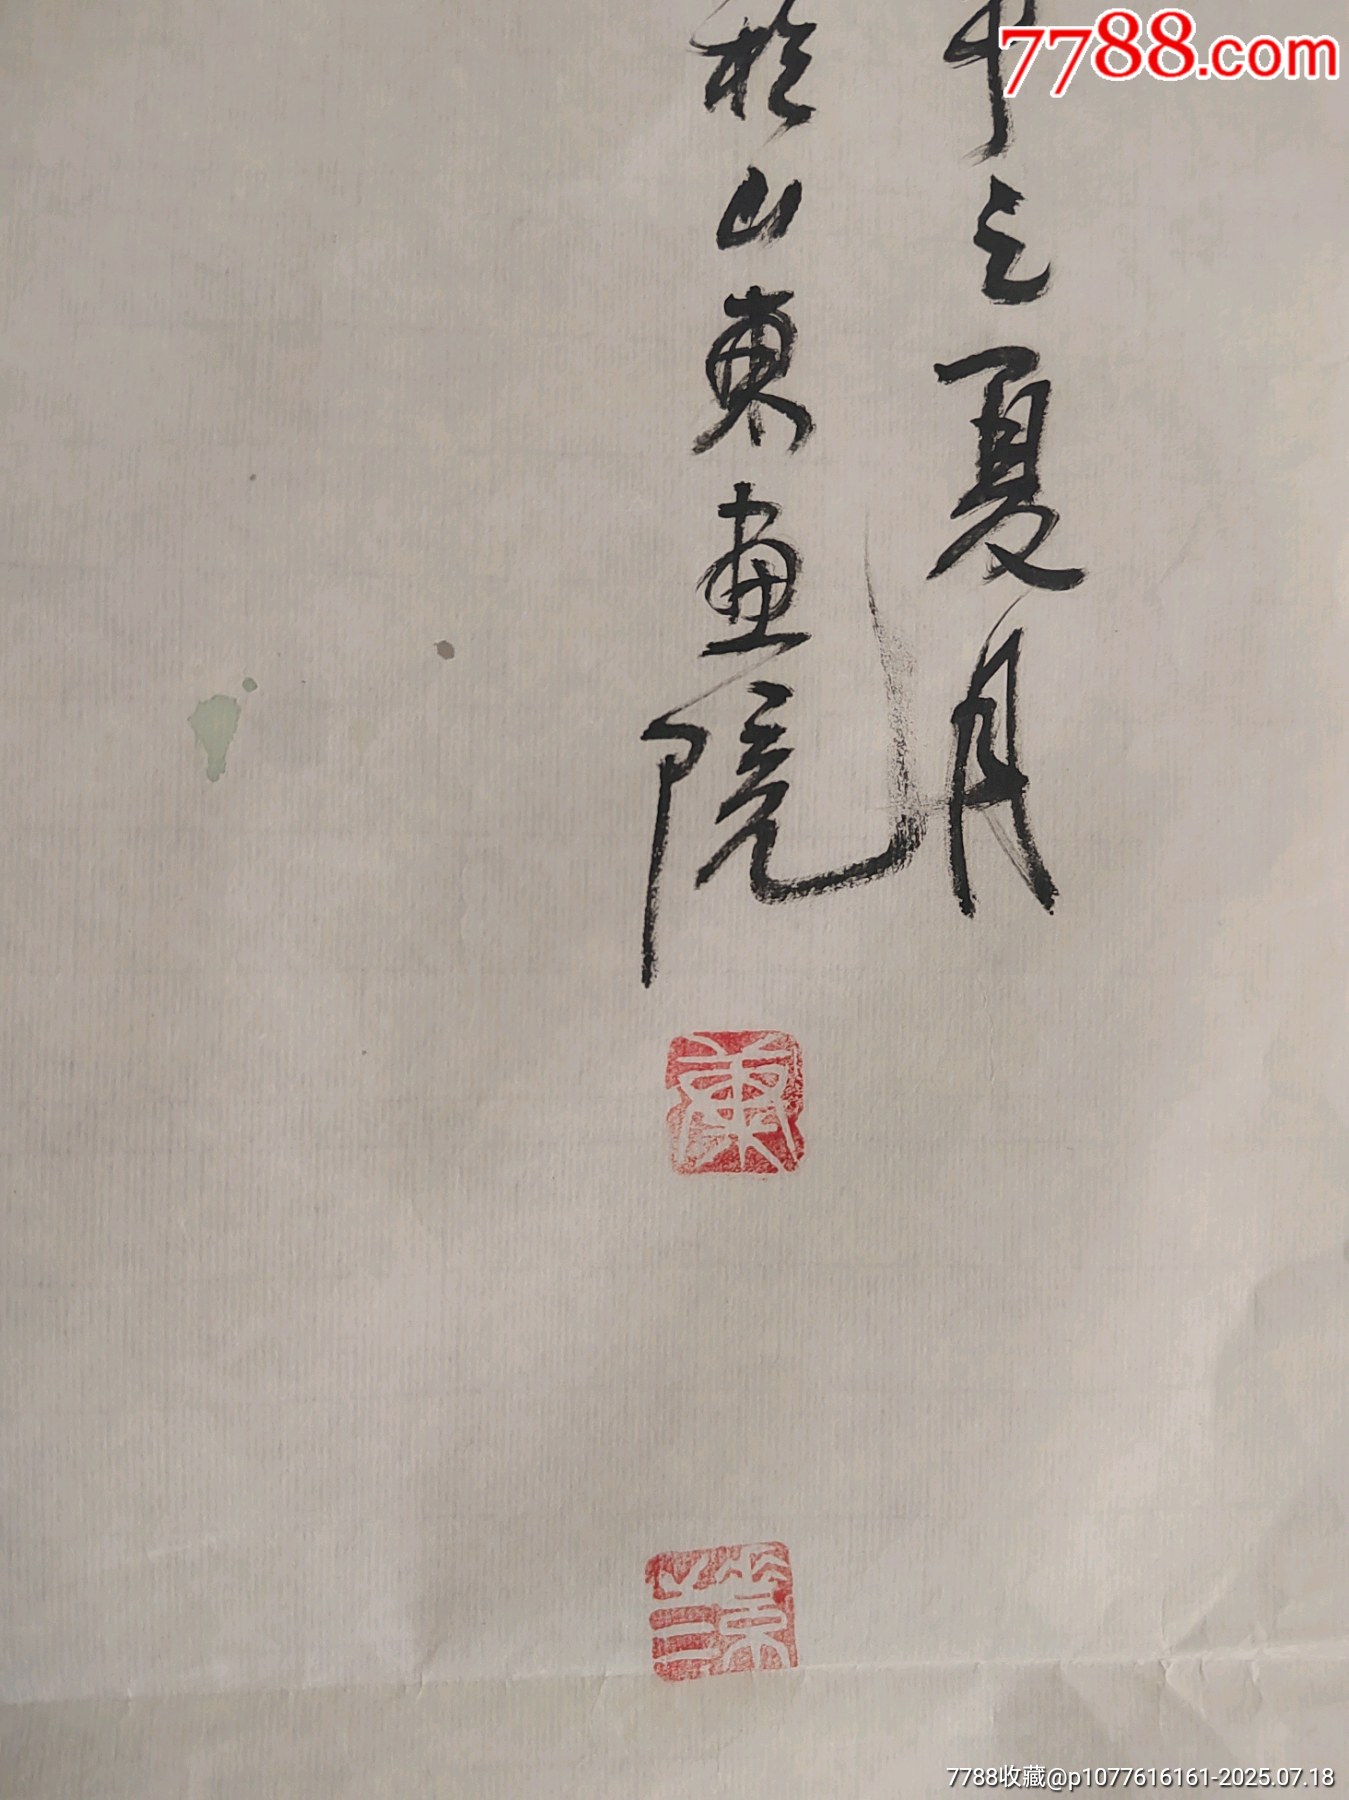 7788.com
之夏月
於山東画院
康
7788收藏@p1077616161-2025.07.18